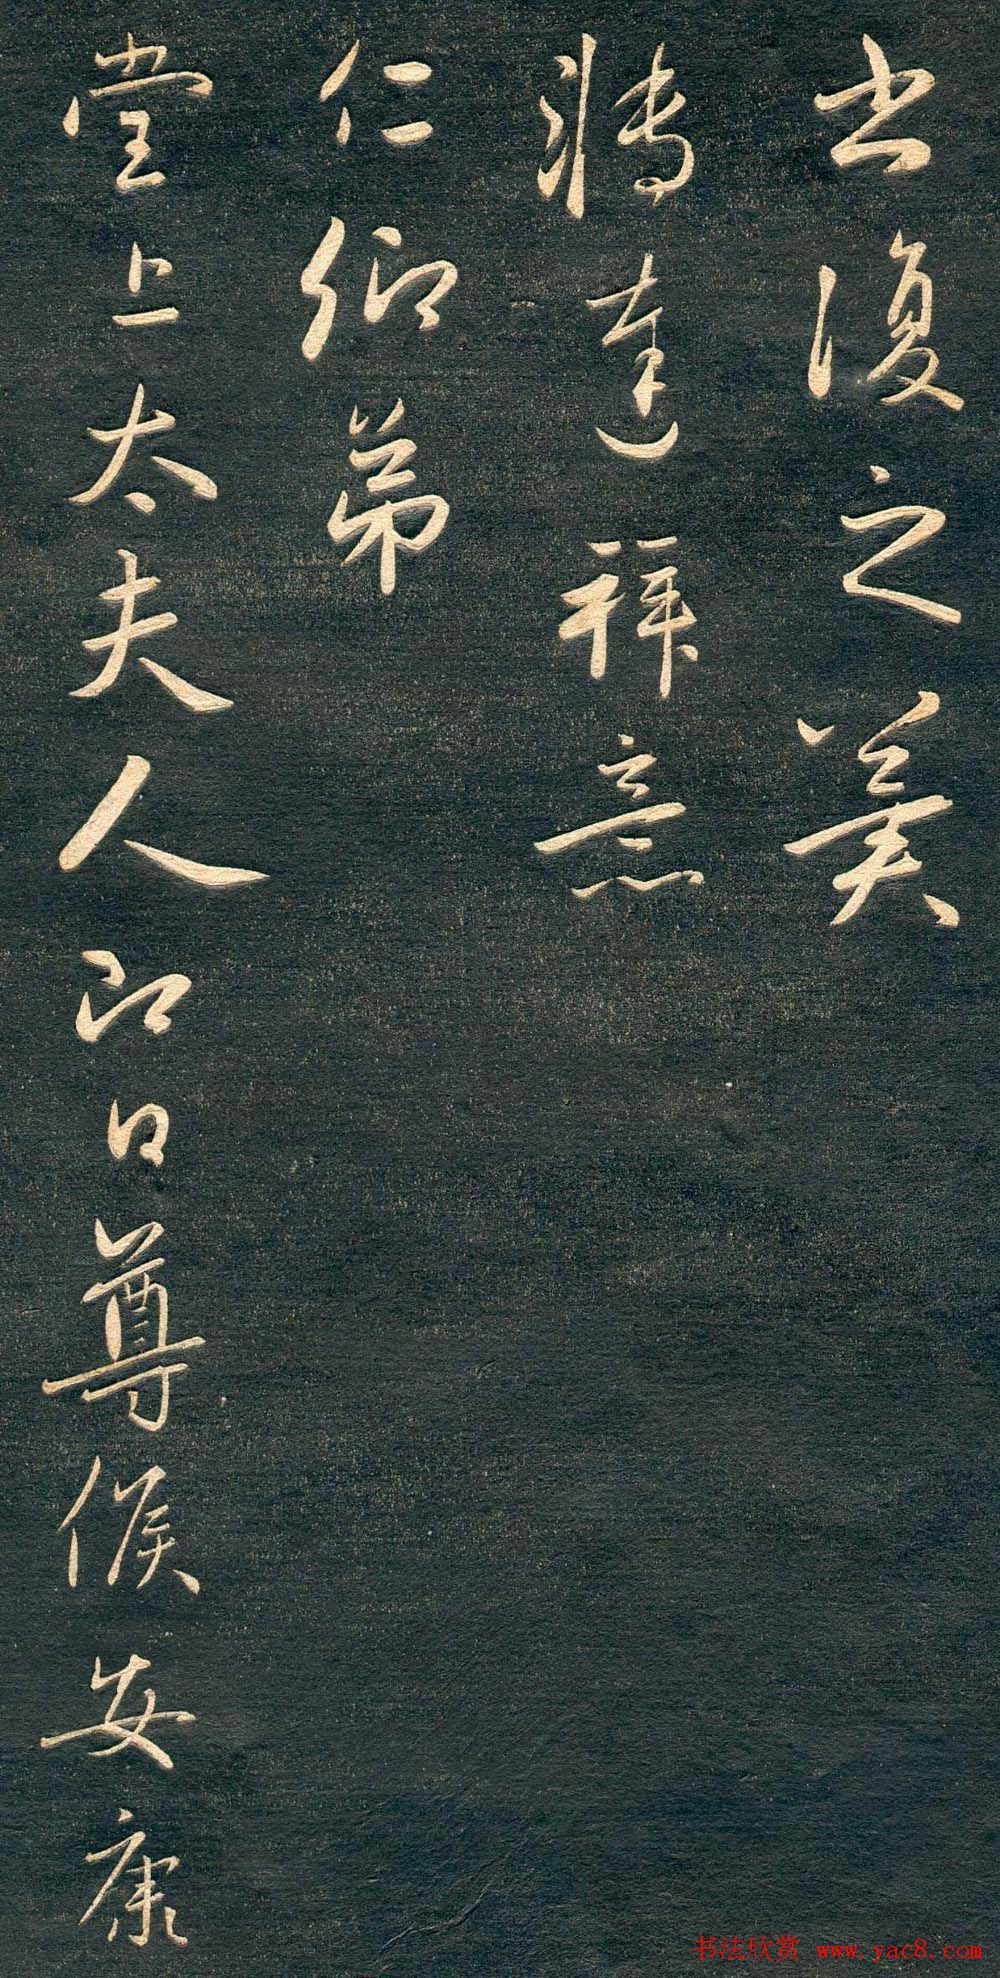 出復之美
将達禅意
仁仰弟
堂上太夫人即日尊候安康
书法欣赏 www.yac8.com